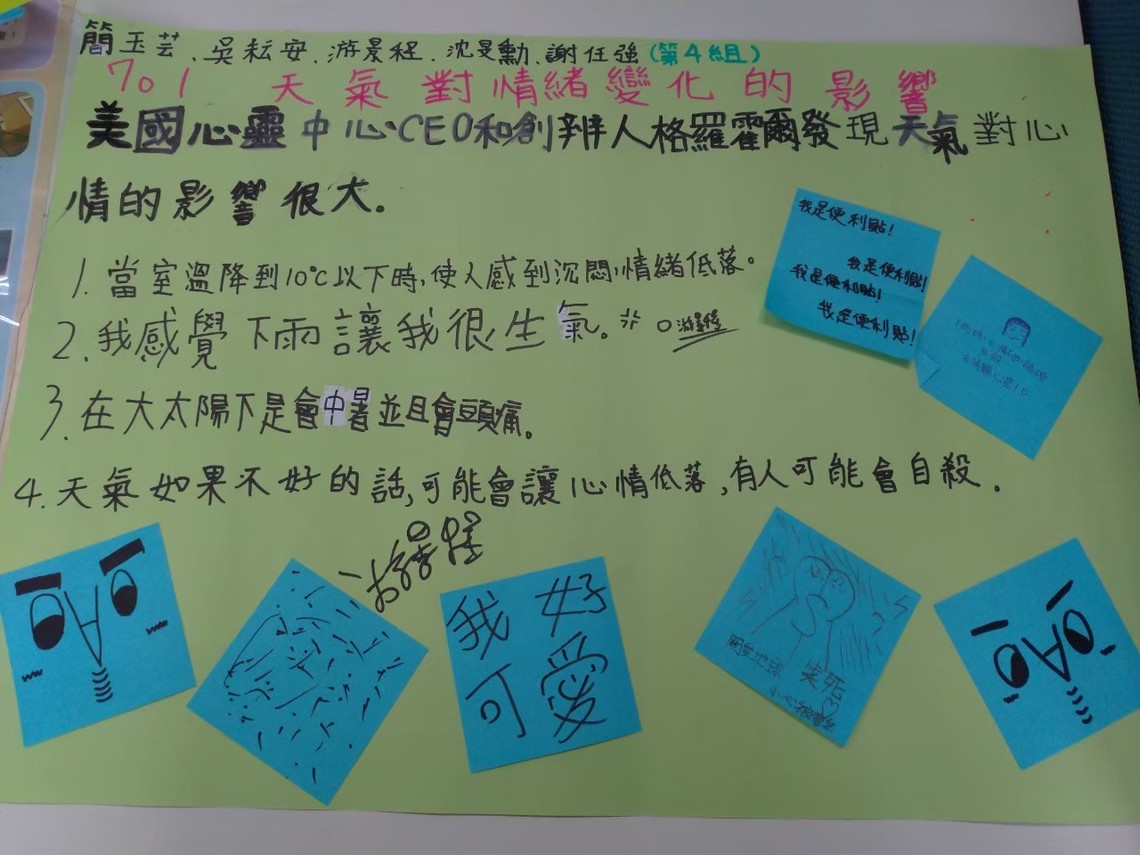 簡玉芸、吳耘安.游景程.沈昱勳.謝任強(第4組)
701 天氣對情緒變化的影響
美國心靈中心CEO和創辨人格羅霍爾發現天氣對心
情的影響很大。
1.當室溫降到10℃以下時,使人感到沈悶,情緒低落。
2.我感覺下雨讓我很生氣。
3.在大太陽下是會中暑並且會頭痛。
4.天氣如果不好的話,可能會讓心情低落,有人可能會自殺.
我是便利貼!
我是便利貼!
我是便利貼!
我是便利貼!
游景程
我好
可愛
笑死